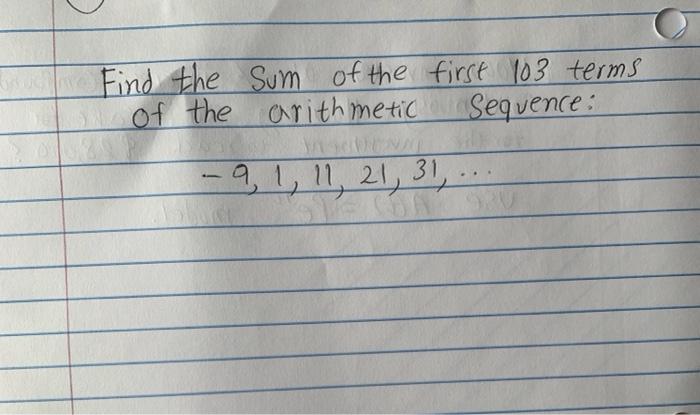 Find the Sum of the first 103 terms
of the arithmetic Sequence:
-9, 1, 11, 21, 31, ...